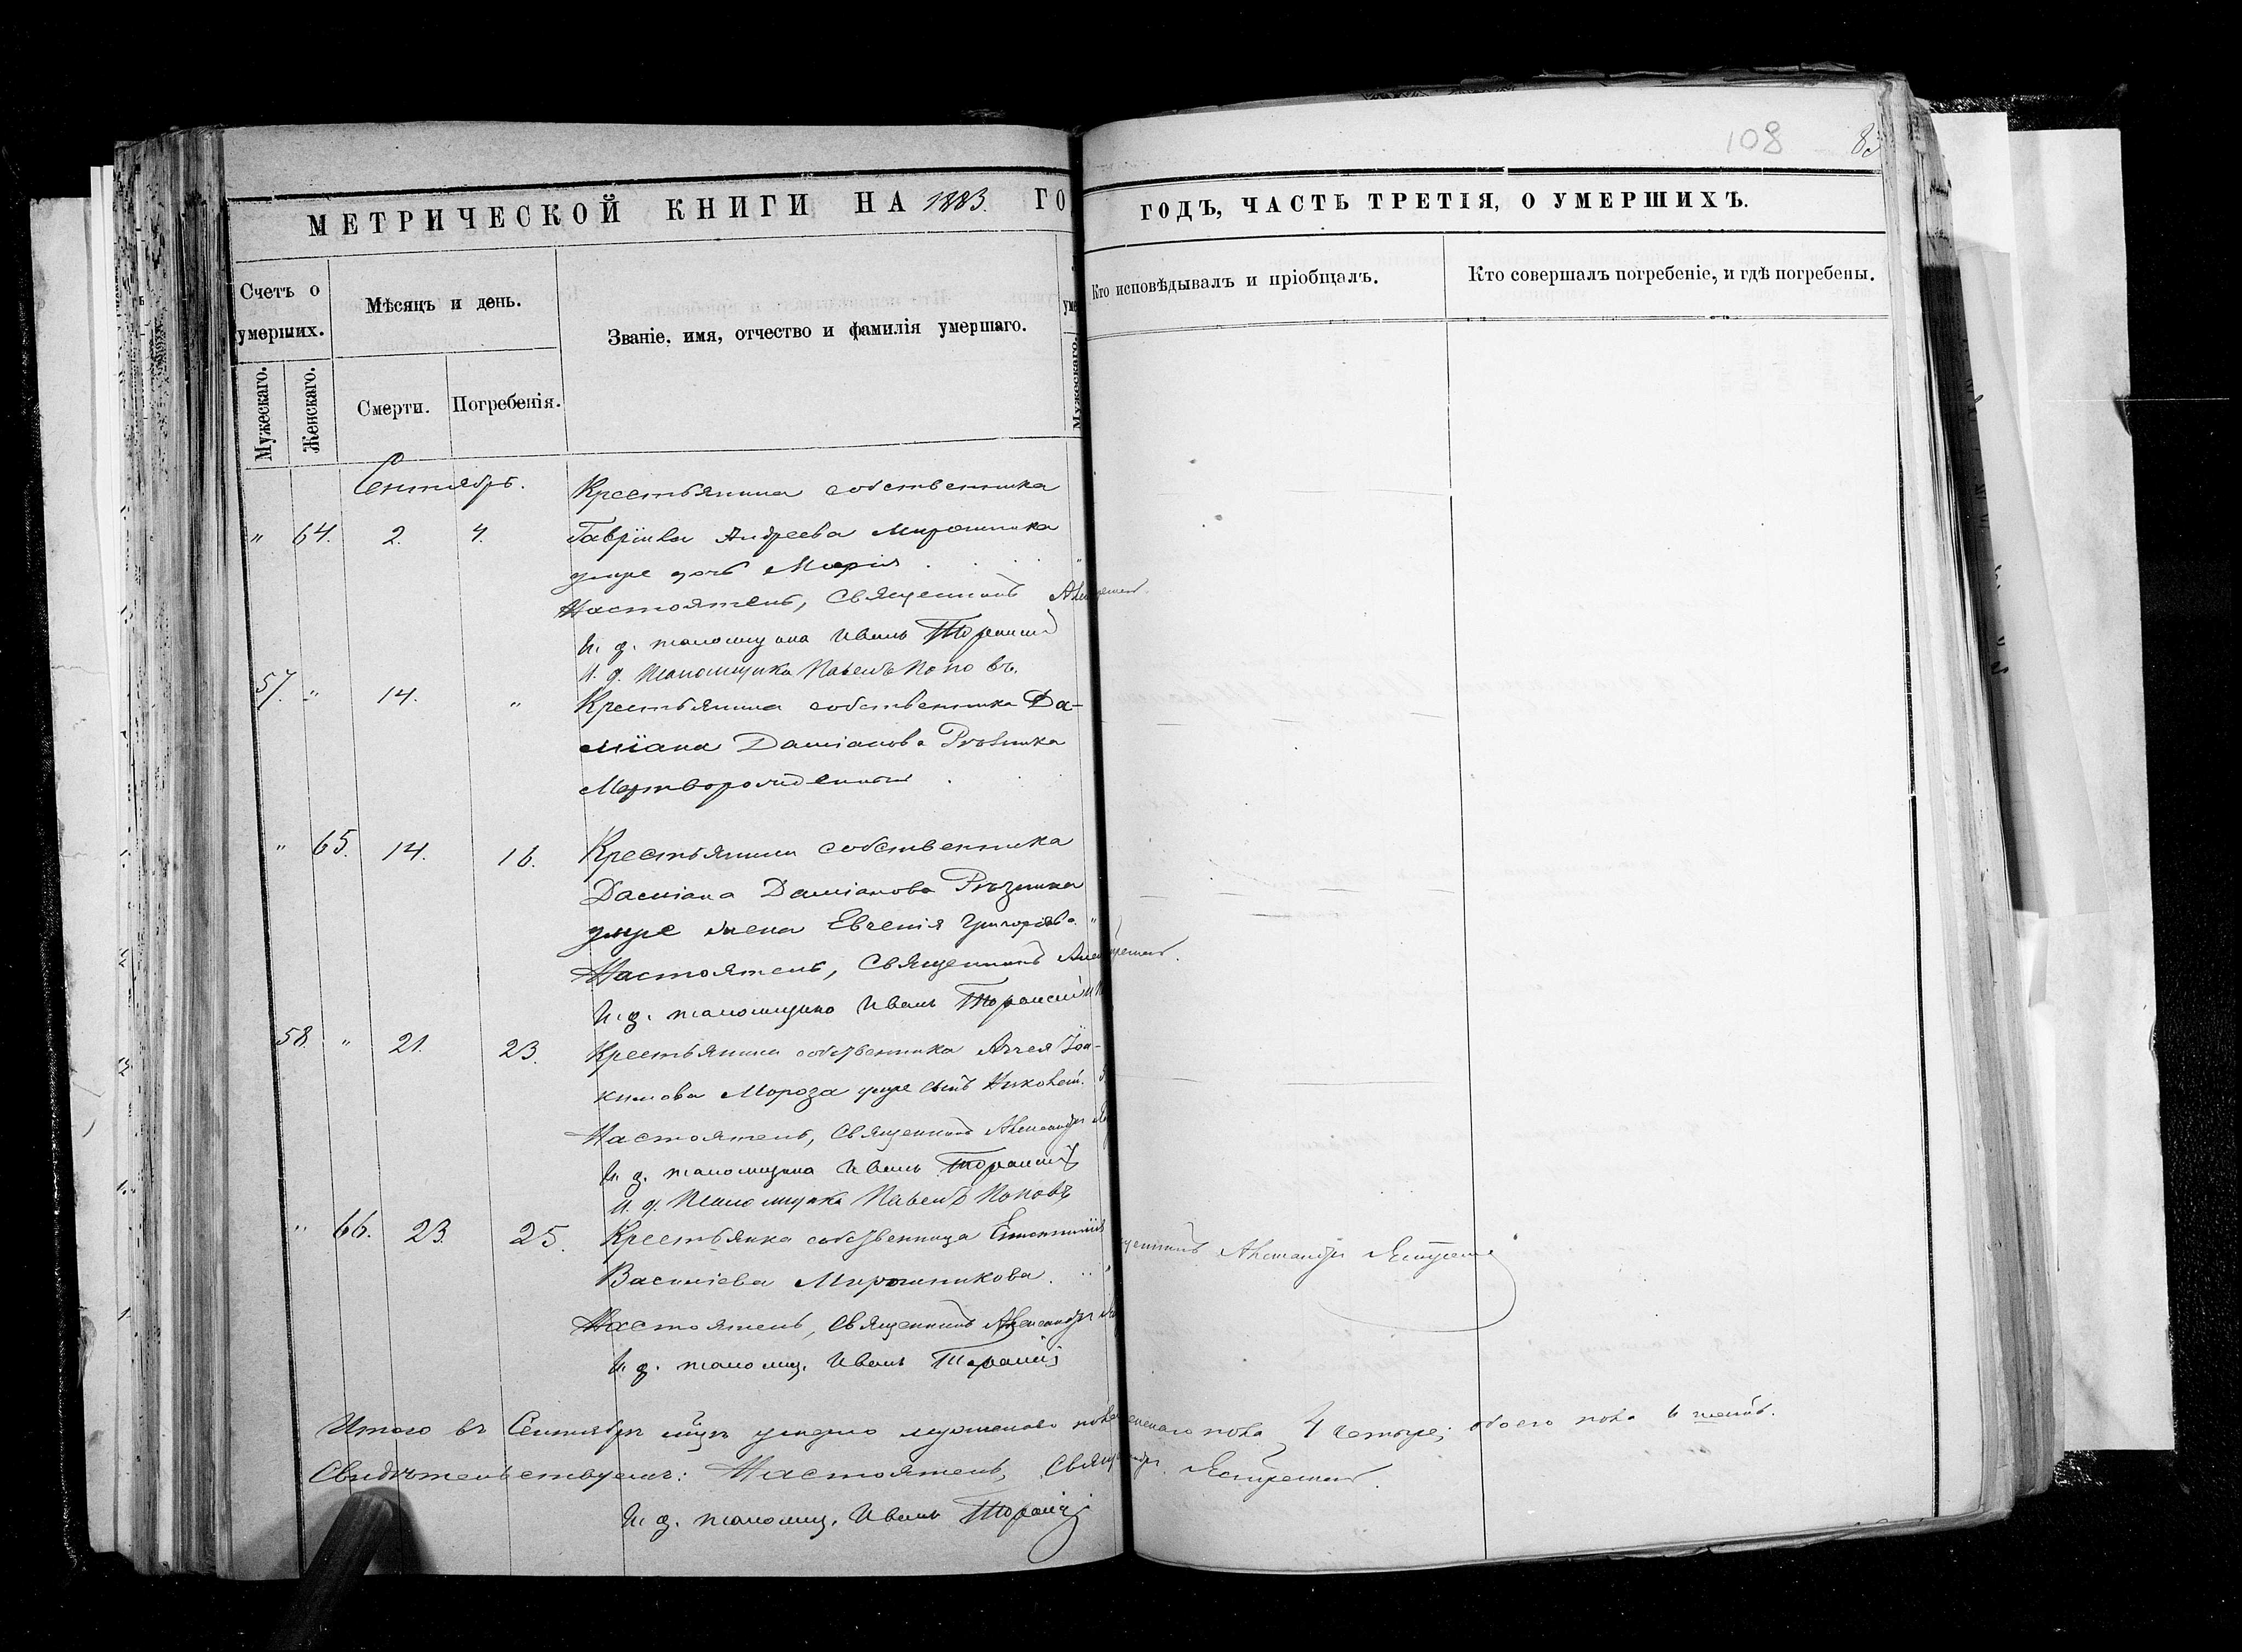 108 83
МЕТРИЧЕСКОЙ КНИГИ НА 1883. ГО
ГОДЪ, ЧАСТЬ ТРЕТІЯ, О УМЕРШИХЪ.
Счетъ о умершихъ.
Мѣсяцъ и день.
Званіе, имя, отчество и фамилія умершаго.
уме
Кто исповѣдывалъ и пріобщалъ.
Кто совершалъ погребеніе, и гдѣ погребены.
Мужескаго.
Женскаго.
Смерти.
Погребенія.
Мужескаго.
Сентябрь.
Крестьянина собственника
" 64. 2. 4. Гавріила Андреева Мирошника
умре дочь Марія
Настоятель, Священникъ
И. д. псаломщика Иванъ
И. д. Псаломщика Павелъ Поповъ.
57. " 14. " Крестьянина собственника Да-
міана Даміанова
Мертворожденный
" 65. 14. 16. Крестьянина собственника
Даміана Даміанова
умре жена Евгенія Григоріева "
Настоятель, Священникъ
И. д. псаломщика Иванъ
58. " 21. 23. Крестьянина собственника Іоа-
кимова Мороза умре сынъ Николай.
Настоятель, Священникъ Александръ
И. д. псаломщика Иванъ
И. д. Псаломщика Павелъ Поповъ
" 66. 23. 25. Крестьянка собственница
Василіева Мирошникова.
Настоятель, Священникъ Александръ
И. д. псаломщ. Иванъ
щенникъ Александръ
Итого въ Сентябрѣ мцѣ умерло мужескаго пола
женскаго пола 4 четыре; обоего пола 6 шесть.
Свидѣтельствуемъ: Настоятель, Священникъ
И. д. псаломщ. Иванъ